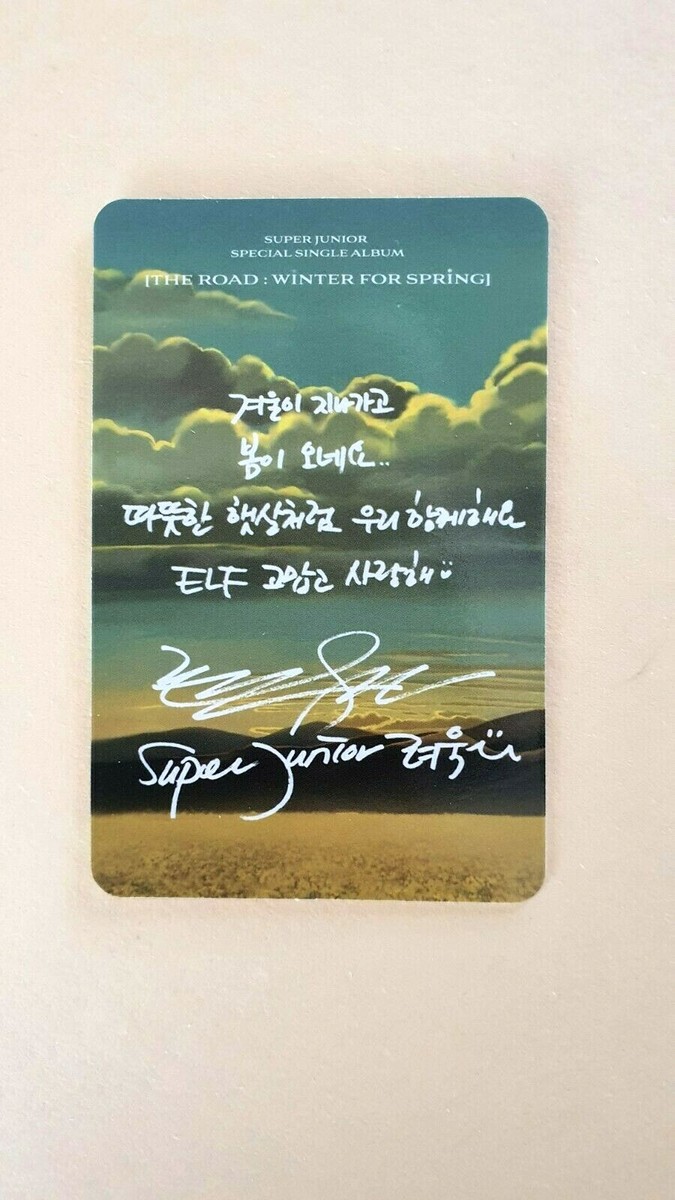 SUPER JUNIOR
SPECIAL SINGLE ALBUM
[THE ROAD : WINTER FOR SPRING]
겨울이 지나가고
봄이 오네요..
따뜻한 햇살처럼 우리 함께해요
ELF 고맙고 사랑해
Super Junior 려욱